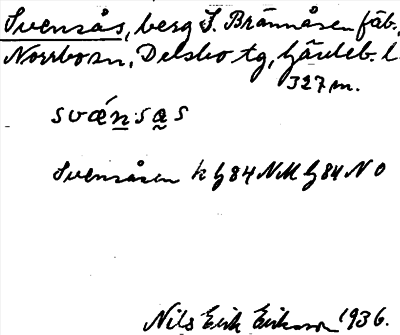 Svensås, berg S. Brännåsen fäb.,
Norrbo sn, Delsbo tg, Gävleb. l.
327 m.
svǽn·sas
Svensåsen k h 84 NM h 84 NO
Nils Erik Eriksson 1936.